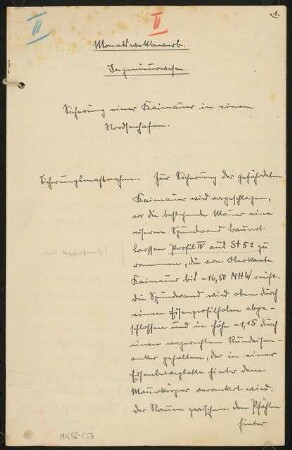 II
II
1.
Monatswettbewerb.
Ingenieurwesen
Sicherung einer Kaimauer in einem
Nordseehafen.
Sicherungsmaßnahmen. Zur Sicherung der gefährdeten
Kaimauer wird vorgeschlagen,
vor die bestehende Mauer eine
eiserne Spundwand Bauart
Larssen Profil IV aus St 52 zu
rammen, die von Oberkante
Kaimauer bis -16,50 MHW reicht.
die Spundwand wird oben durch
einen Eisenprofilholm abge-
schlossen und in Höhe -1,15 durch
einen Rundeisen-
anker gehalten, der in einer
Eisenbetonplatte hinter dem
Mauerkörper verankert wird.
der Raum zwischen den Pfählen
hinter